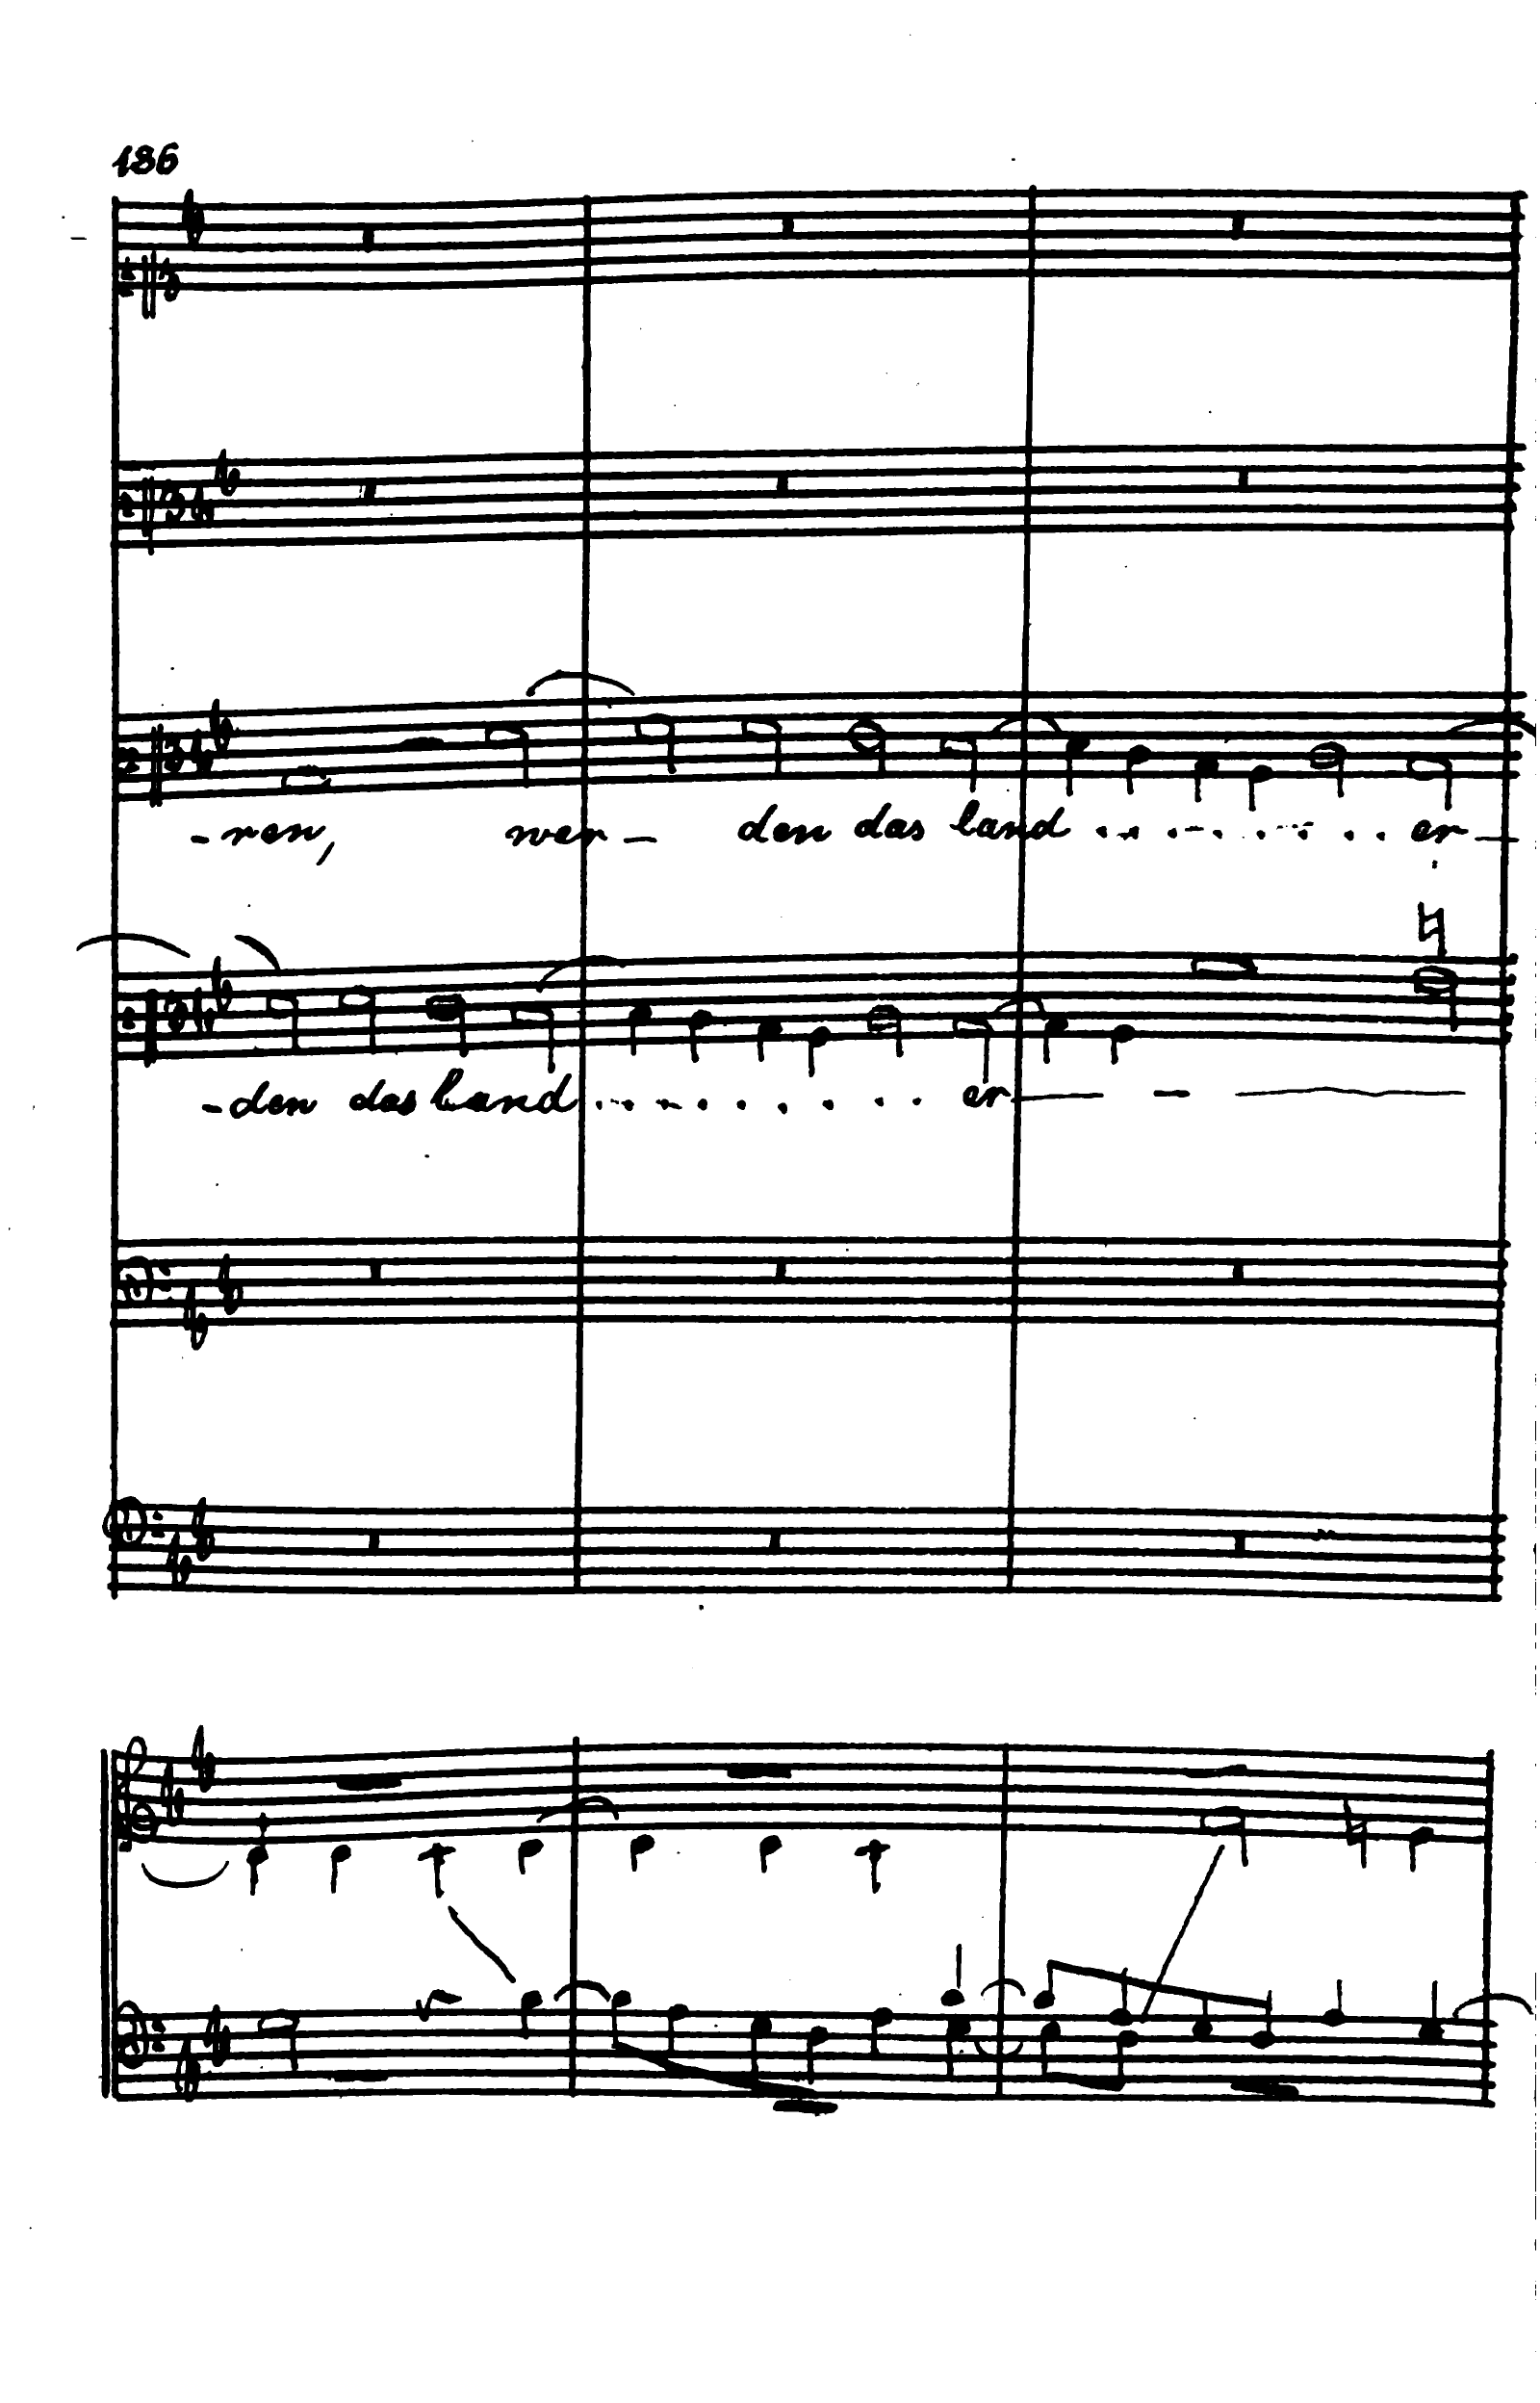 186
-ren, wer- den das land . . . . . . . . . er-
-den das land . . . . . . . . . er- - -